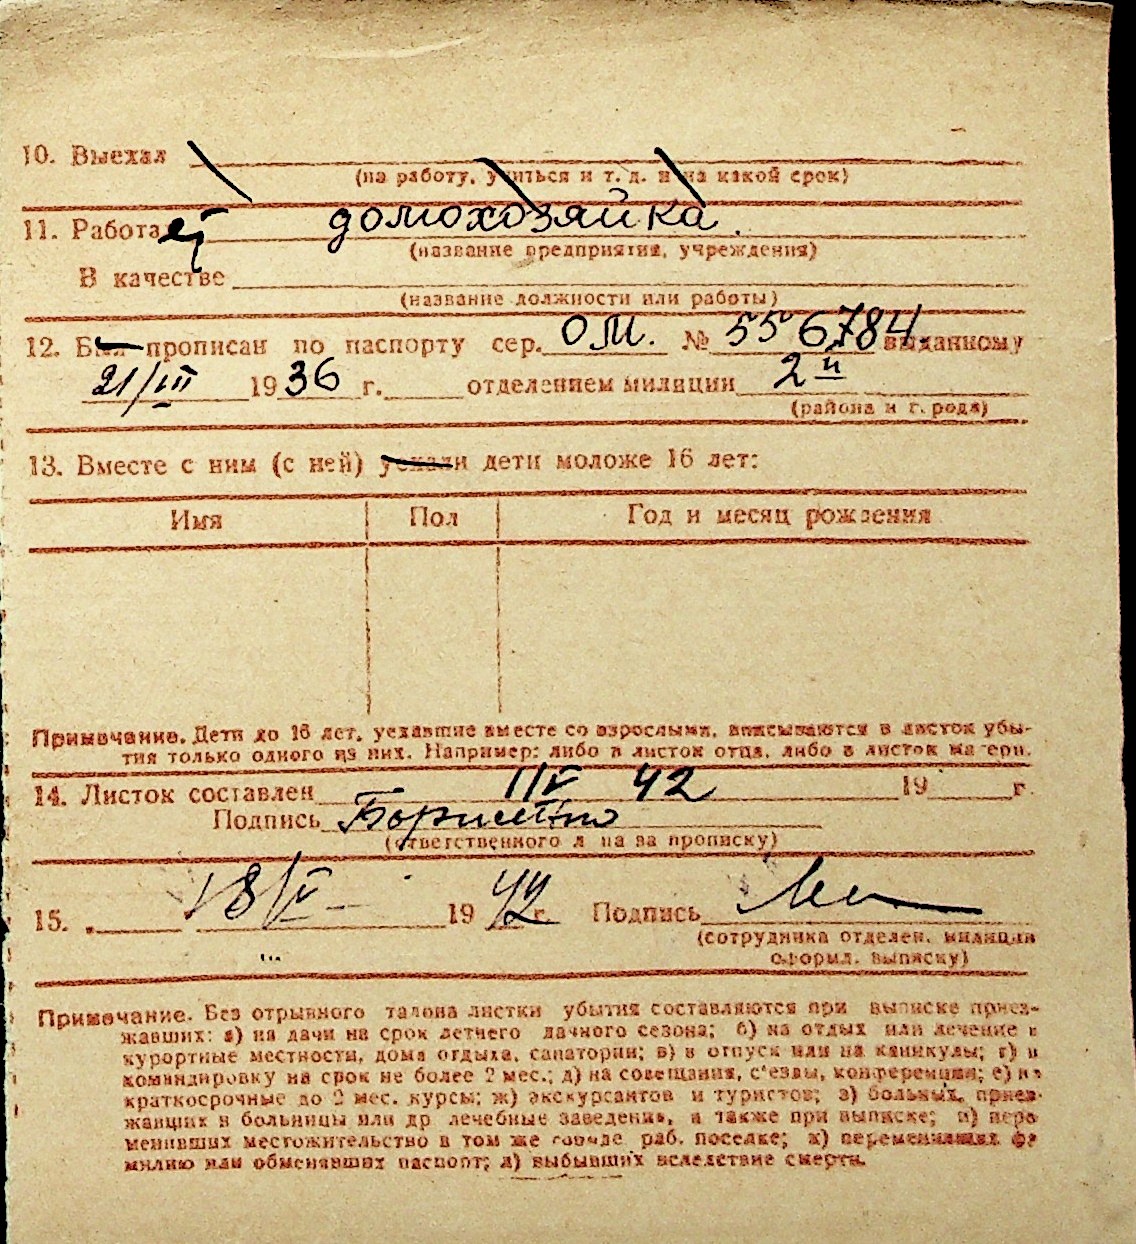 10. Выехал
(на работу, учиться и т. д. и на какой срок)
11. Работает домохозяйка.
(название предприятия, учреждения)
В качестве
(название должности или работы)
12. Был прописан по паспорту сер. О.М. № 556784 выданному
21/III 1936 г. отделением милиции 2й
(района и города)
13. Вместе с ним (с ней) уехали дети моложе 16 лет:
Имя Пол Год и месяц рождения
Примечание. Дети до 16 лет, уехавшие вместе со взрослыми, вписываются в листок убы-
тия только одного из них. Например: либо в листок отца, либо в листок матери.
14. Листок составлен 1/V 42 19 г.
Подпись
(ответственного лица за прописку)
15. 18/V 1942 г. Подпись
(сотрудника отделен. милиции
оформл. выписку)
Примечание. Без отрывного талона листки убытия составляются при выписке приез-
жавших: а) на дачи на срок летнего дачного сезона; б) на отдых или лечение в
курортные местности, дома отдыха, санатории; в) в отпуск или на каникулы; г) в
командировку на срок не более 2 мес.; д) на совещания, с'езды, конференции; е) на
краткосрочные до 2 мес. курсы; ж) экскурсантов и туристов; з) больных, приез-
жавших в больницы или др лечебные заведения, а также при выписке; и) пере
менивших местожительство в том же городе раб. поселке; к) переменивших фа
милию или обменявших паспорт; л) выбывших вследствие смерти.